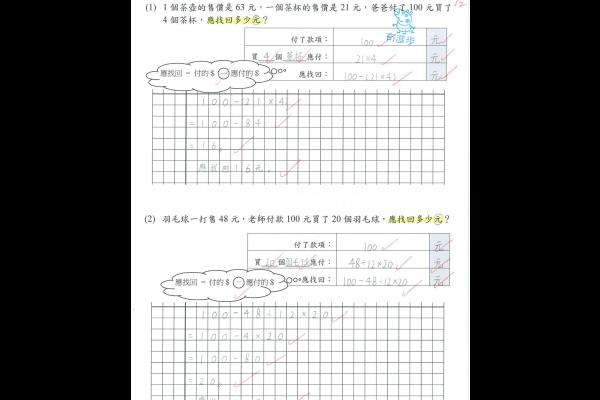 (1) 1 個茶壺的售價是 63 元，一個茶杯的售價是 21 元，爸爸付了 100 元買了
4 個茶杯，應找回多少元？
12
有進步
付了款項： 100 元
買 4 個 茶杯 應付： 21×4 元
應找回： 100-(21×4) 元
應找回 = 付的$ － 應付的$
100-21×4
=100-84
=16。
應找回16元。
(2) 羽毛球一打售 48 元，老師付款 100 元買了 20 個羽毛球，應找回多少元？
付了款項： 100 元
買 20 個 羽毛球 應付： 48÷12×20 元
應找回： 100-48÷12×20 元
應找回 = 付的$ － 應付的$
100-48÷12×20
=100-4×20
=100-80
=20。